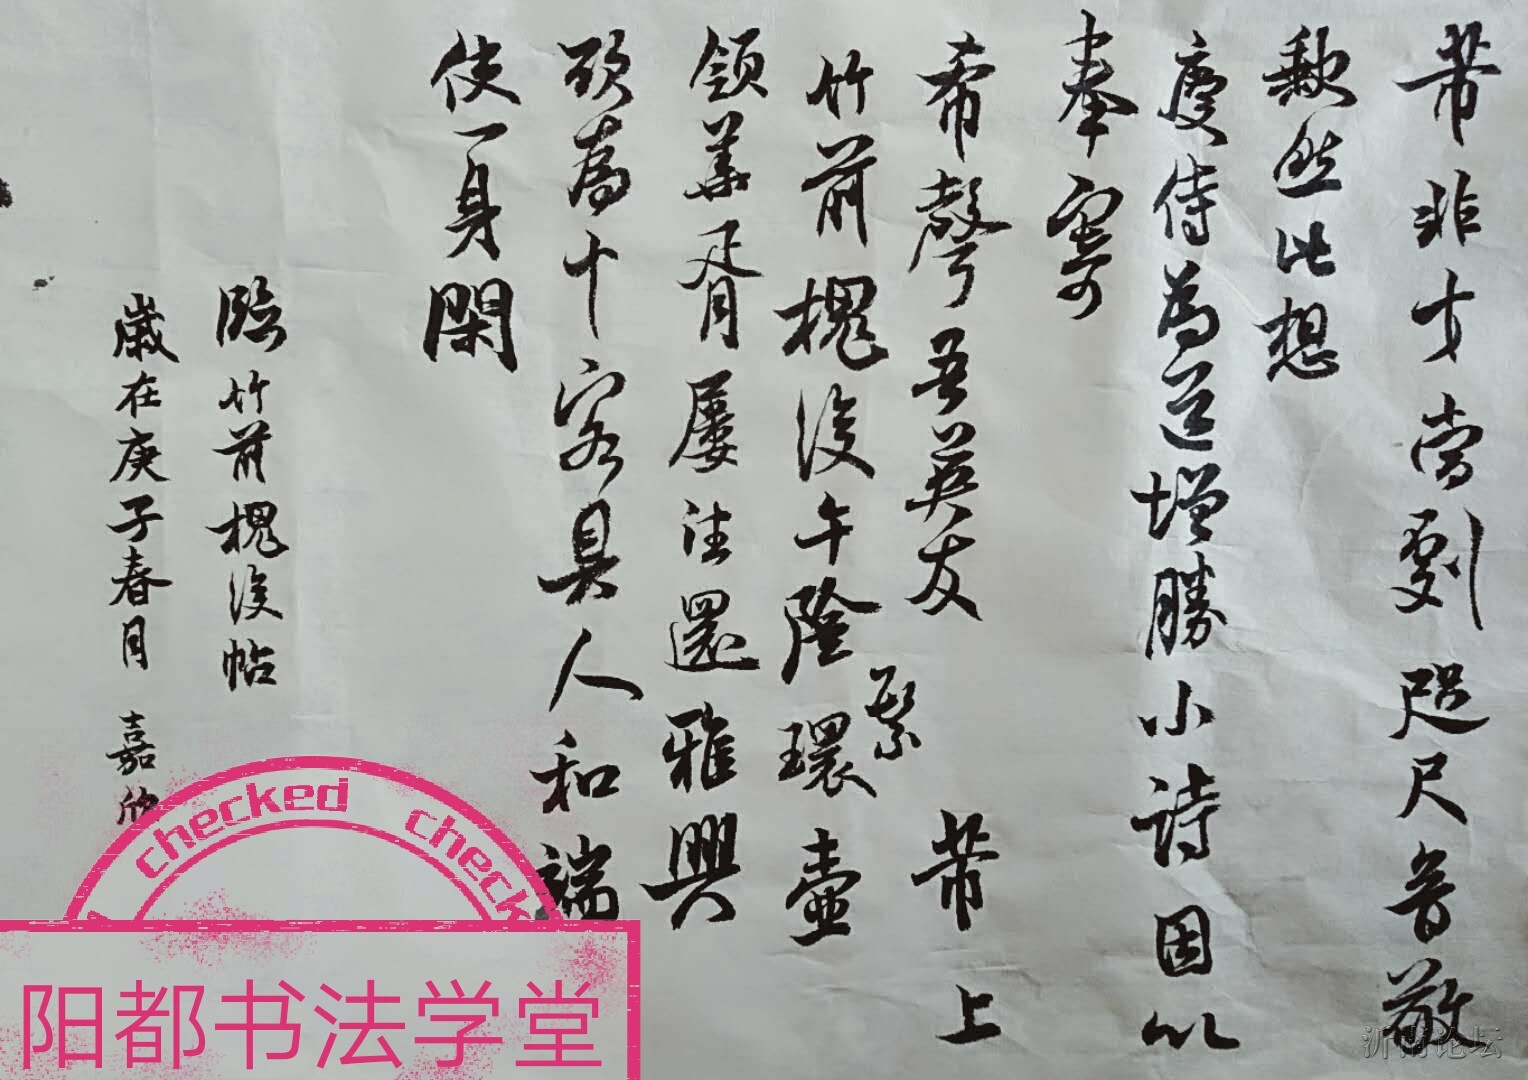 芾非才当劇咫尺音敬
歉然此想
慶侍為道增勝小詩因以
奉寄
希聲吾英友 芾上
竹前槐後午陰繁
環壺
領華胥屢往還雅興
欲為十客具人和端
使一身閑
臨竹前槐後帖
歲在庚子春月 嘉欣
checked check
阳都书法学堂
沂南论坛